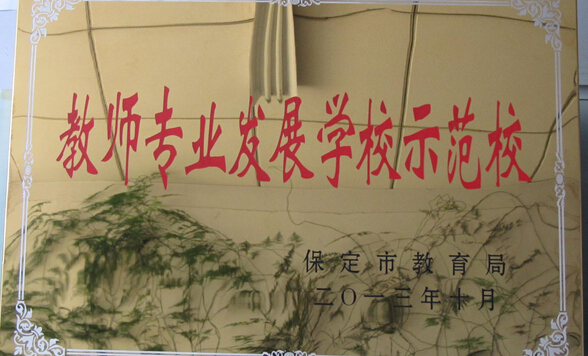 教师专业发展学校示范校
保定市教育局
二〇一三年十月